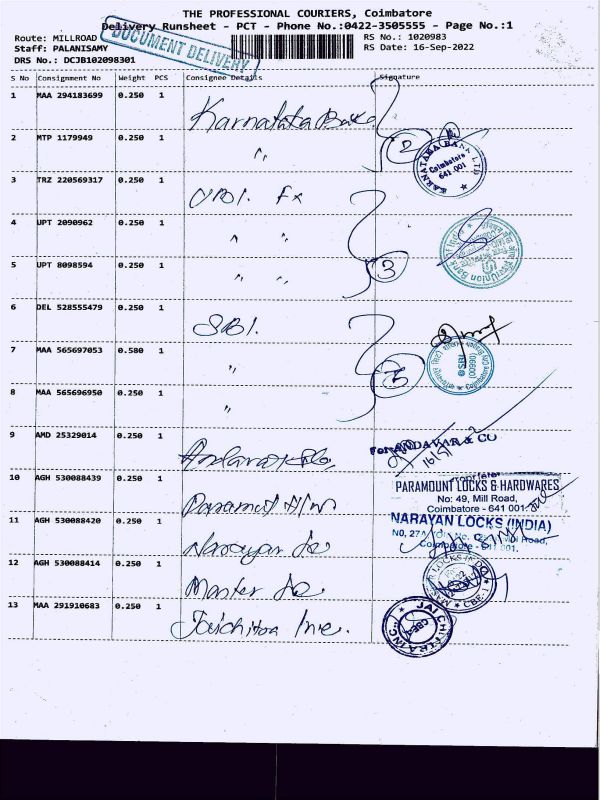 THE PROFESSIONAL COURIERS, Coimbatore
Delivery Runsheet - PCT - Phone No.:0422-3505555 - Page No.:1
Route: MILLROAD
Staff: PALANISAMY
DRS No.: DCJB102098301
DOCUMENT DELIVERY
RS No.: 1020983
RS Date: 16-Sep-2022
S No Consignment No Weight PCS Consignee Details Signature
1 MAA 294183699 0.250 1 Karnataka Bank
2 MTP 1179949 0.250 1 〃
2
KARNATAKA BANK LTD
Coimbatore
641 001
3 TRZ 220569317 0.250 1 UBI. Fx
4 UPT 2090962 0.250 1 〃 〃
5 UPT 8098594 0.250 1 〃 〃
3
Union Bank of India
6 DEL 528555479 0.250 1 SBI.
7 MAA 565697053 0.580 1 〃
SBI
8 MAA 565696950 0.250 1 〃
9 AMD 25329014 0.250 1
For ANDAVAR & CO
Proprietor
10 AGH 530088439 0.250 1 Paramount H/W
PARAMOUNT LOCKS & HARDWARES
No: 49, Mill Road,
Coimbatore - 641 001
11 AGH 530088420 0.250 1 Narayan Lo
NARAYAN LOCKS (INDIA)
12 AGH 530088414 0.250 1 Master Lo
CBE-1
13 MAA 291910683 0.250 1 Jaichitra Inc.
JAI CHITRA INC